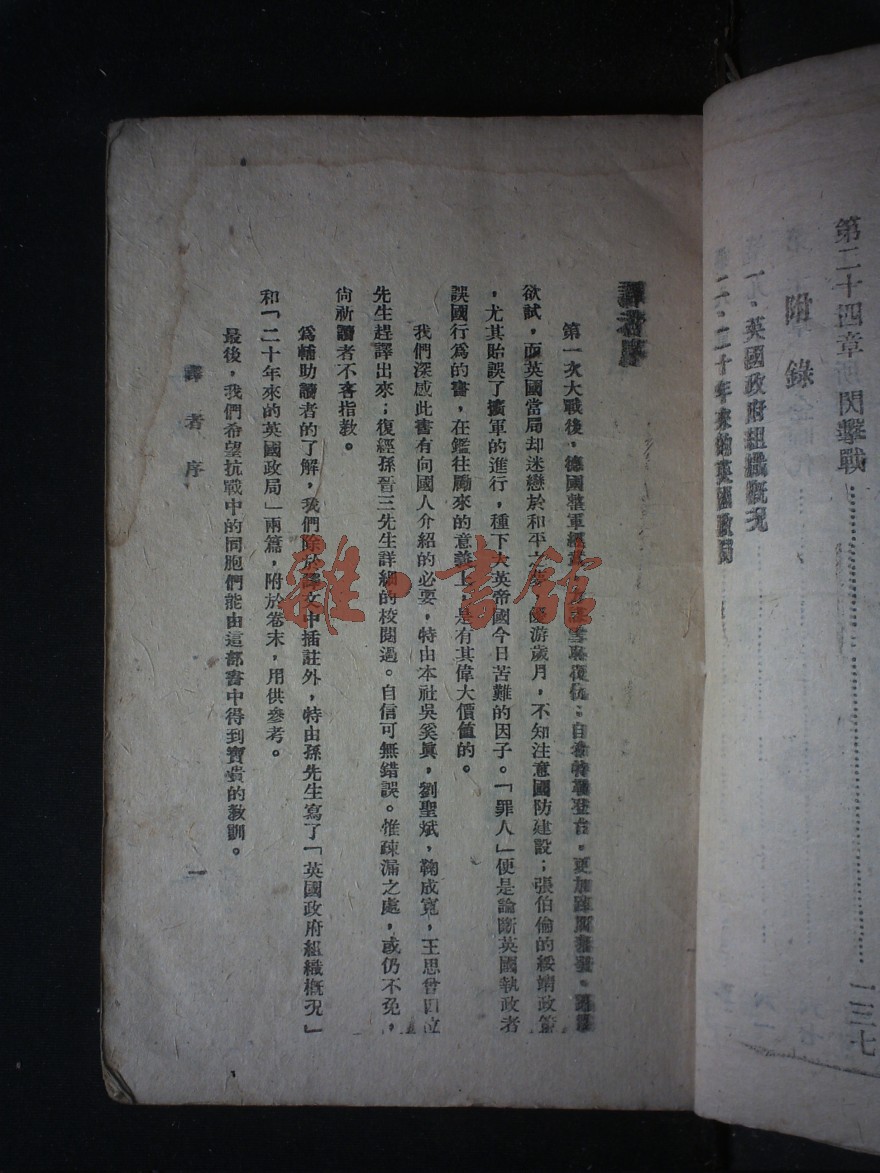 第二十四章 閃擊戰…………一三七
附 錄
一、英國政府組織概況
二、二十年來的英國政局
譯者序
第一次大戰後，德國整軍經武，雪恥復仇；自希特勒登台，更加
欲試，而英國當局却迷戀於和平之夢，優游歲月，不知注意國防建設；張伯倫的綏靖政策
，尤其貽誤了擴軍的進行，種下大英帝國今日苦難的因子。「罪人」便是論斷英國執政者
誤國行爲的書，在鑑往勵來的意義上，是有其偉大價值的。
我們深感此書有向國人介紹的必要，特由本社吳奚眞，劉聖斌，鞠成寬，王思曾四位
先生趕譯出來；復經孫晉三先生詳細的校閱過。自信可無錯誤。惟疎漏之處，或仍不免，
尙祈讀者不吝指教。
爲輔助讀者的了解，我們除於譯文中插註外，特由孫先生寫了「英國政府組織概況」
和「二十年來的英國政局」兩篇，附於卷末，用供參考。
最後，我們希望抗戰中的同胞們能由這部書中得到寶貴的教訓。
譯者序 一
雜·書館